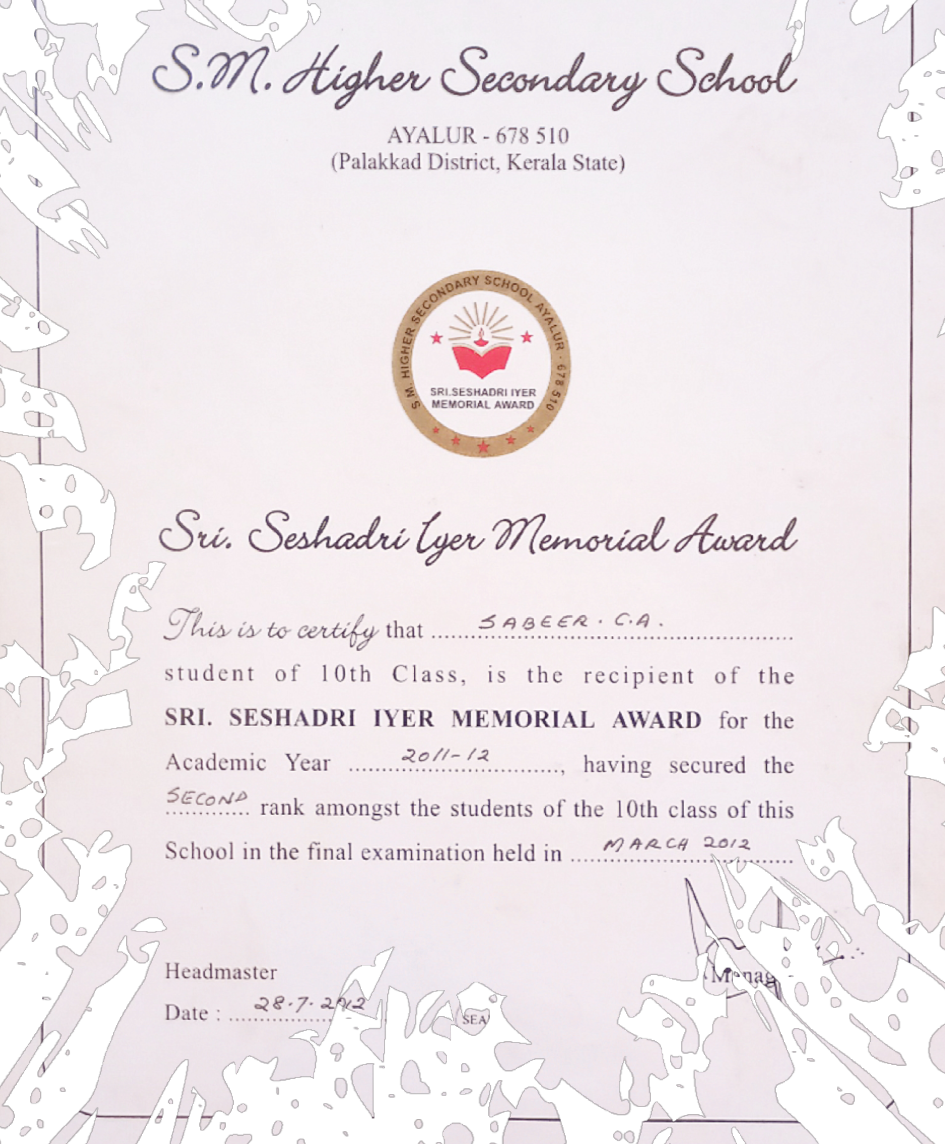 S.M. Higher Secondary School
AYALUR - 678 510
(Palakkad District, Kerala State)
S.M. HIGHER SECONDARY SCHOOL AYALUR - 678 510
SRI.SESHADRI IYER
MEMORIAL AWARD
Sri. Seshadri Iyer Memorial Award
This is to certify that ..... SABEER. C.A. .....
student of 10th Class, is the recipient of the
SRI. SESHADRI IYER MEMORIAL AWARD for the
Academic Year ..... 2011-12 ....., having secured the
SECOND rank amongst the students of the 10th class of this
School in the final examination held in ..... MARCH 2012 .....
Headmaster
Date : ..... 28.7.2012